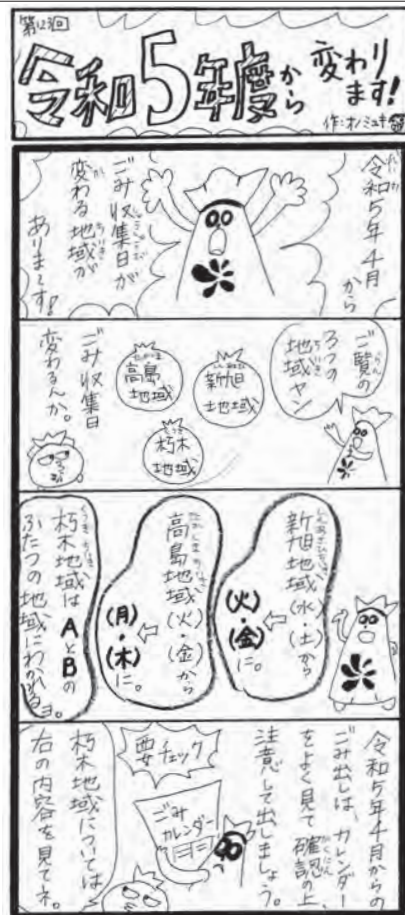 第123回
令和5年度から
変わり
ます!
作:オノミユキ
令和5年4月
から
ごみ収集日が
変わる地域が
あります!
ご覧の
3つの
地域ヤン
新旭
地域
高島
地域
朽木
地域
ごみ収集日
変わるんか。
新旭地域(水・土)から
(火)・(金)に。
高島地域(火・金)から
(月)・(木)に。
朽木地域はAとBの
ふたつの地域にわかれるヨ。
令和5年4月からの
ごみ出しは、カレンダー
をよく見て確認の上、
注意して出しましょう。
要チェック
ごみ
カレンダー
朽木地域については
右の内容を見てネ。